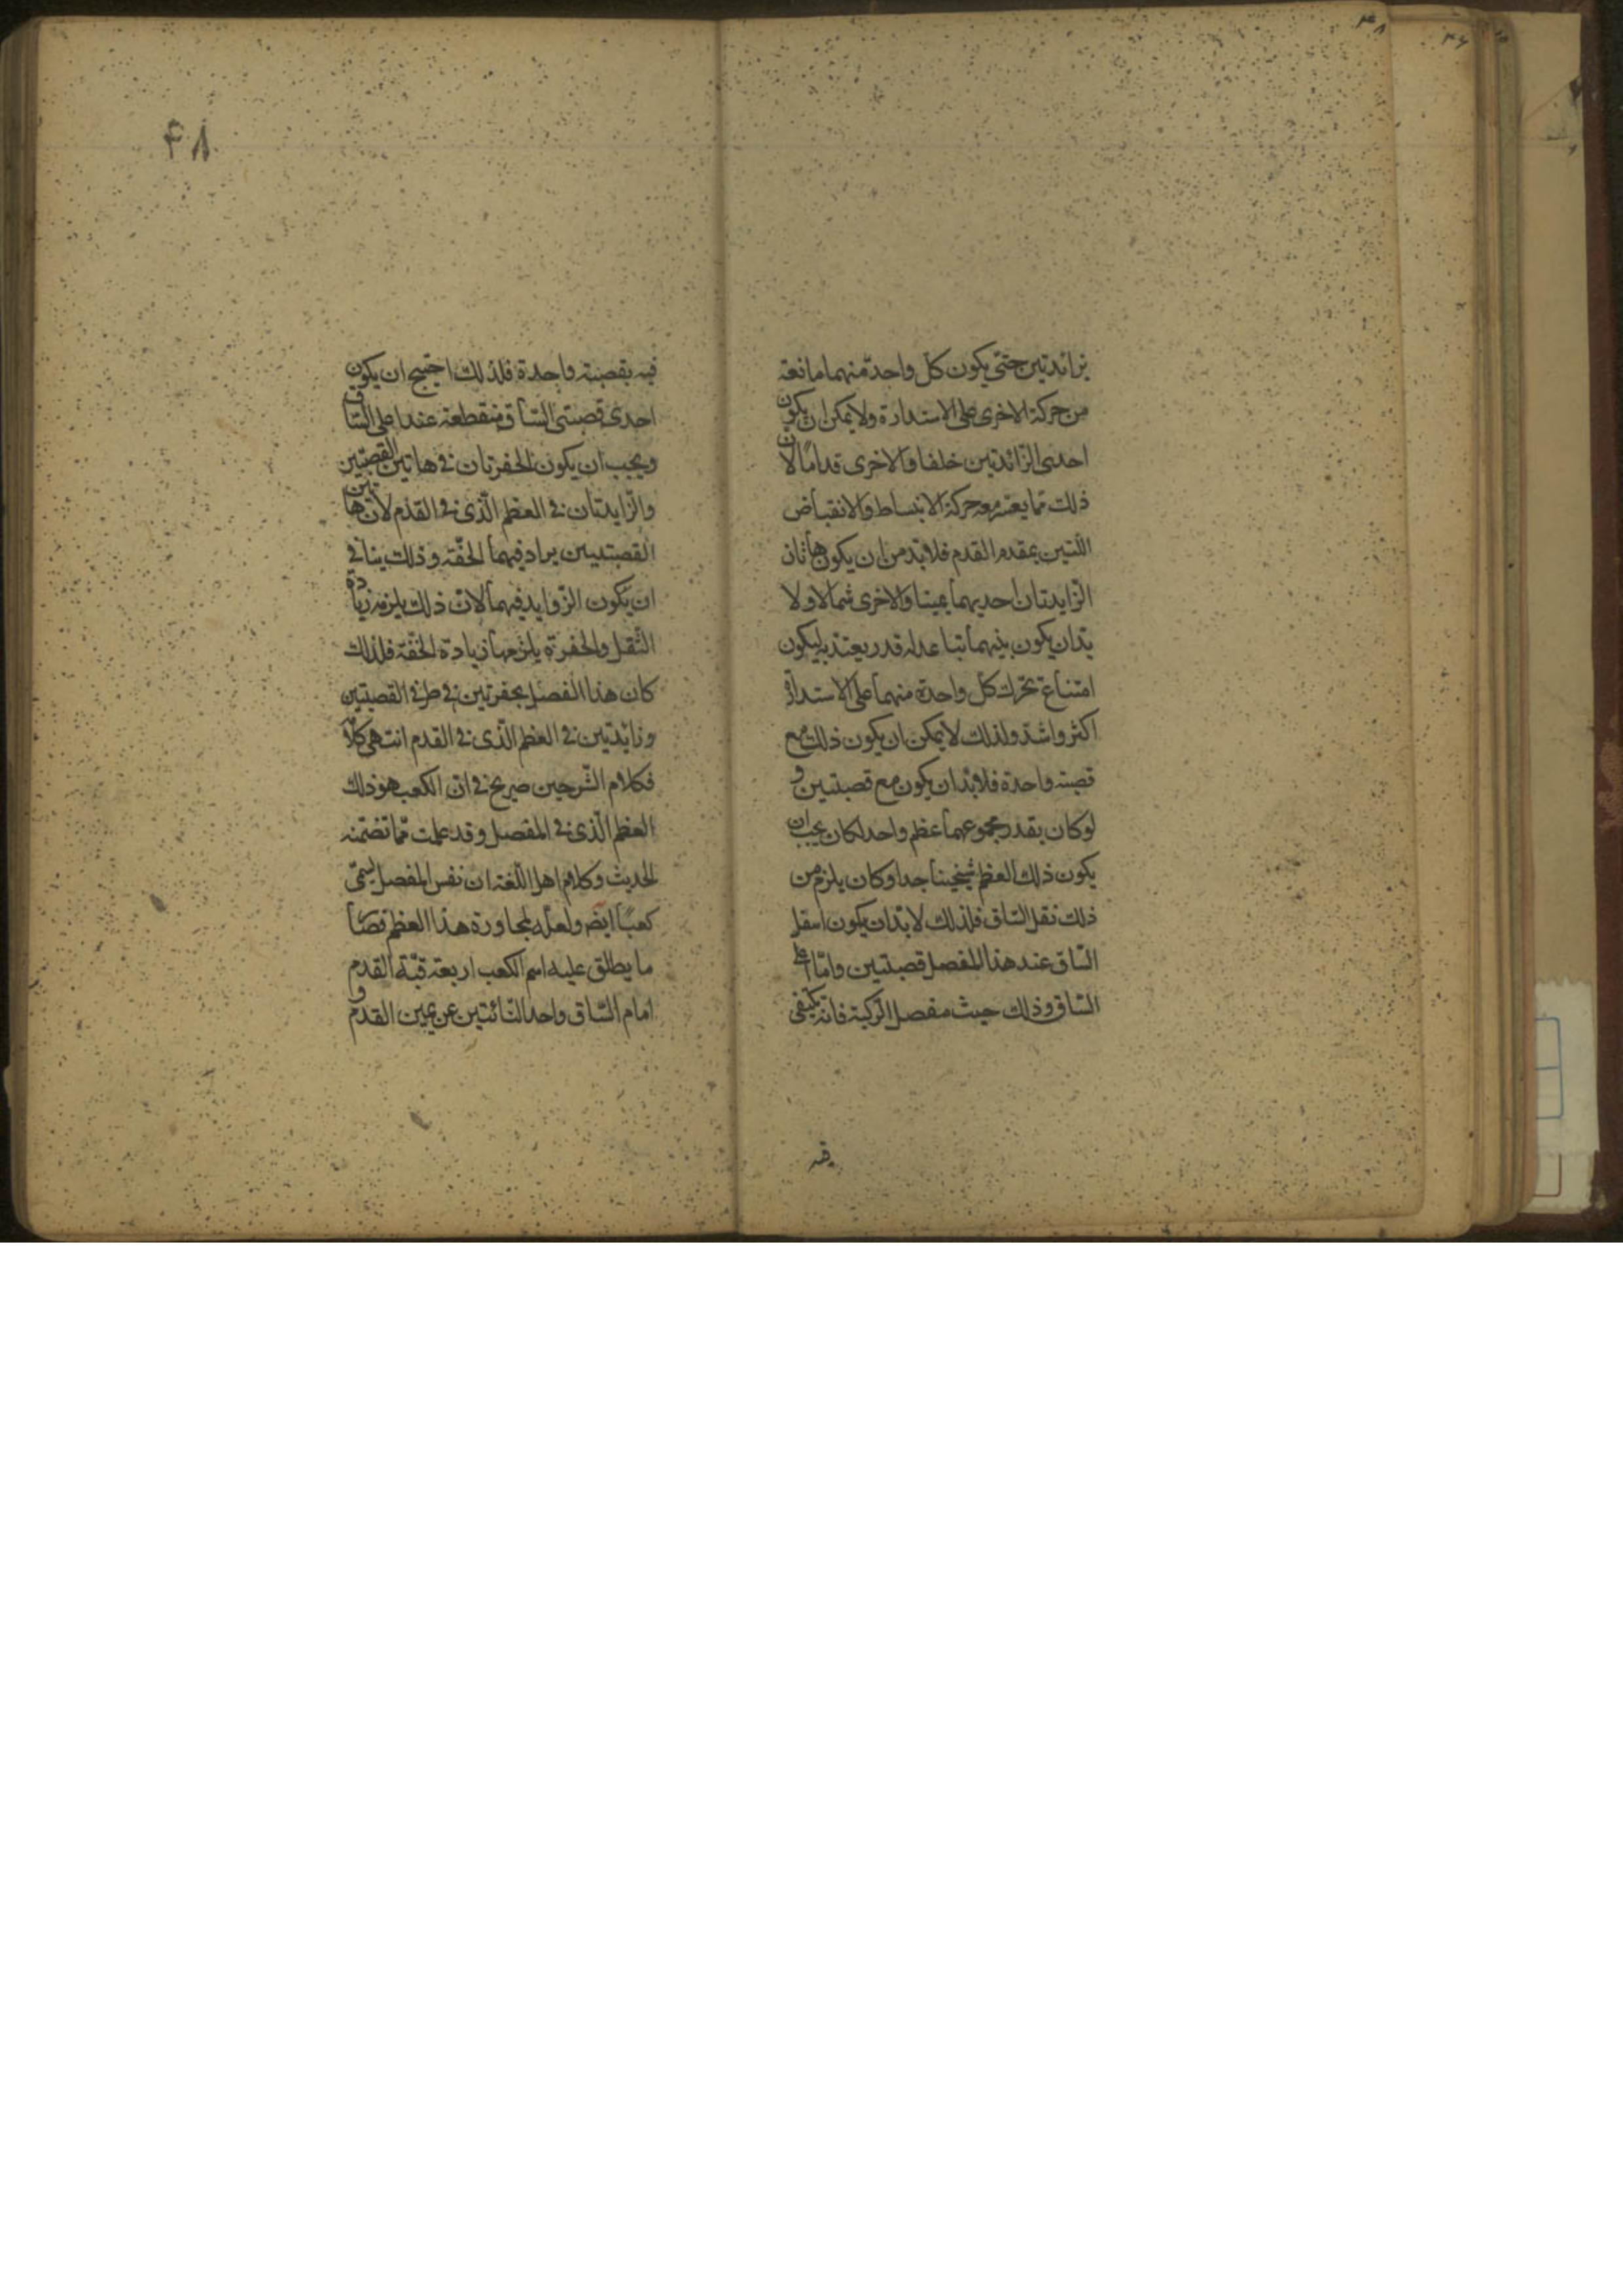 بزائدتين حتى يكون كل واحدة منهما مانعة
من حركة الاخرى على الاستدارة ولا يمكن ان يكون
احدى الزائدتين خلفا والاخرى قداما لان
ذلك مما يعسر معه حركة الانبساط والانقباض
اللتين بمقدم القدم فلابد من ان يكون هاتان
الزايدتان احديهما يمينا والاخرى شمالا ولا
بدان يكون بينهما تباعد له قدر يعتد به ليكون
امتناع تحرك كل واحدة منهما على الاستدارة
اكثر واشد ولذلك لا يمكن ان يكون ذلك مع
قصبة واحدة فلابد ان يكون مع قصبتين و
لو كان بقدر مجموعهما عظم واحد لكان يجب ان
يكون ذلك العظم ثخينا جدا وكان يلزم من
ذلك ثقل الساق فلذلك لابد ان يكون اسفل
الساق عند هذا المفصل قصبتين واما اعلى
الساق وذلك حيث مفصل الركبة فانه يكتفى
فيه
۴۸
فيه بقصبة واحدة فلذلك احتيج ان يكون
احدى قصبتى الساق منقطعة عند اعلى الساق
ويجب ان يكون الحفرتان فى هاتين القصبتين
والزايدتان فى العظم الذى فى القدم لان هاتين
القصبتين يراد فيهما الخفة وذلك ينافى
ان يكون الزوايد فيهما لان ذلك يلزمه زيادة
الثقل والحفرة يلزمها زيادة الخفة فلذلك
كان هذا المفصل بحفرتين فى طرفى القصبتين
وزايدتين فى العظم الذى فى القدم انتهى كلامه
فكلام الشرحين صريح فى ان الكعب هو ذلك
العظم الذى فى المفصل وقد علمت مما تضمنه
الحديث وكلام اهل اللغة ان نفس المفصل يسمى
كعبا ايضا ولعله لمجاورة هذا العظم فصار
ما يطلق عليه اسم الكعب اربعة قبة القدم
امام الساق واحد الناتئتين عن يمين القدم و